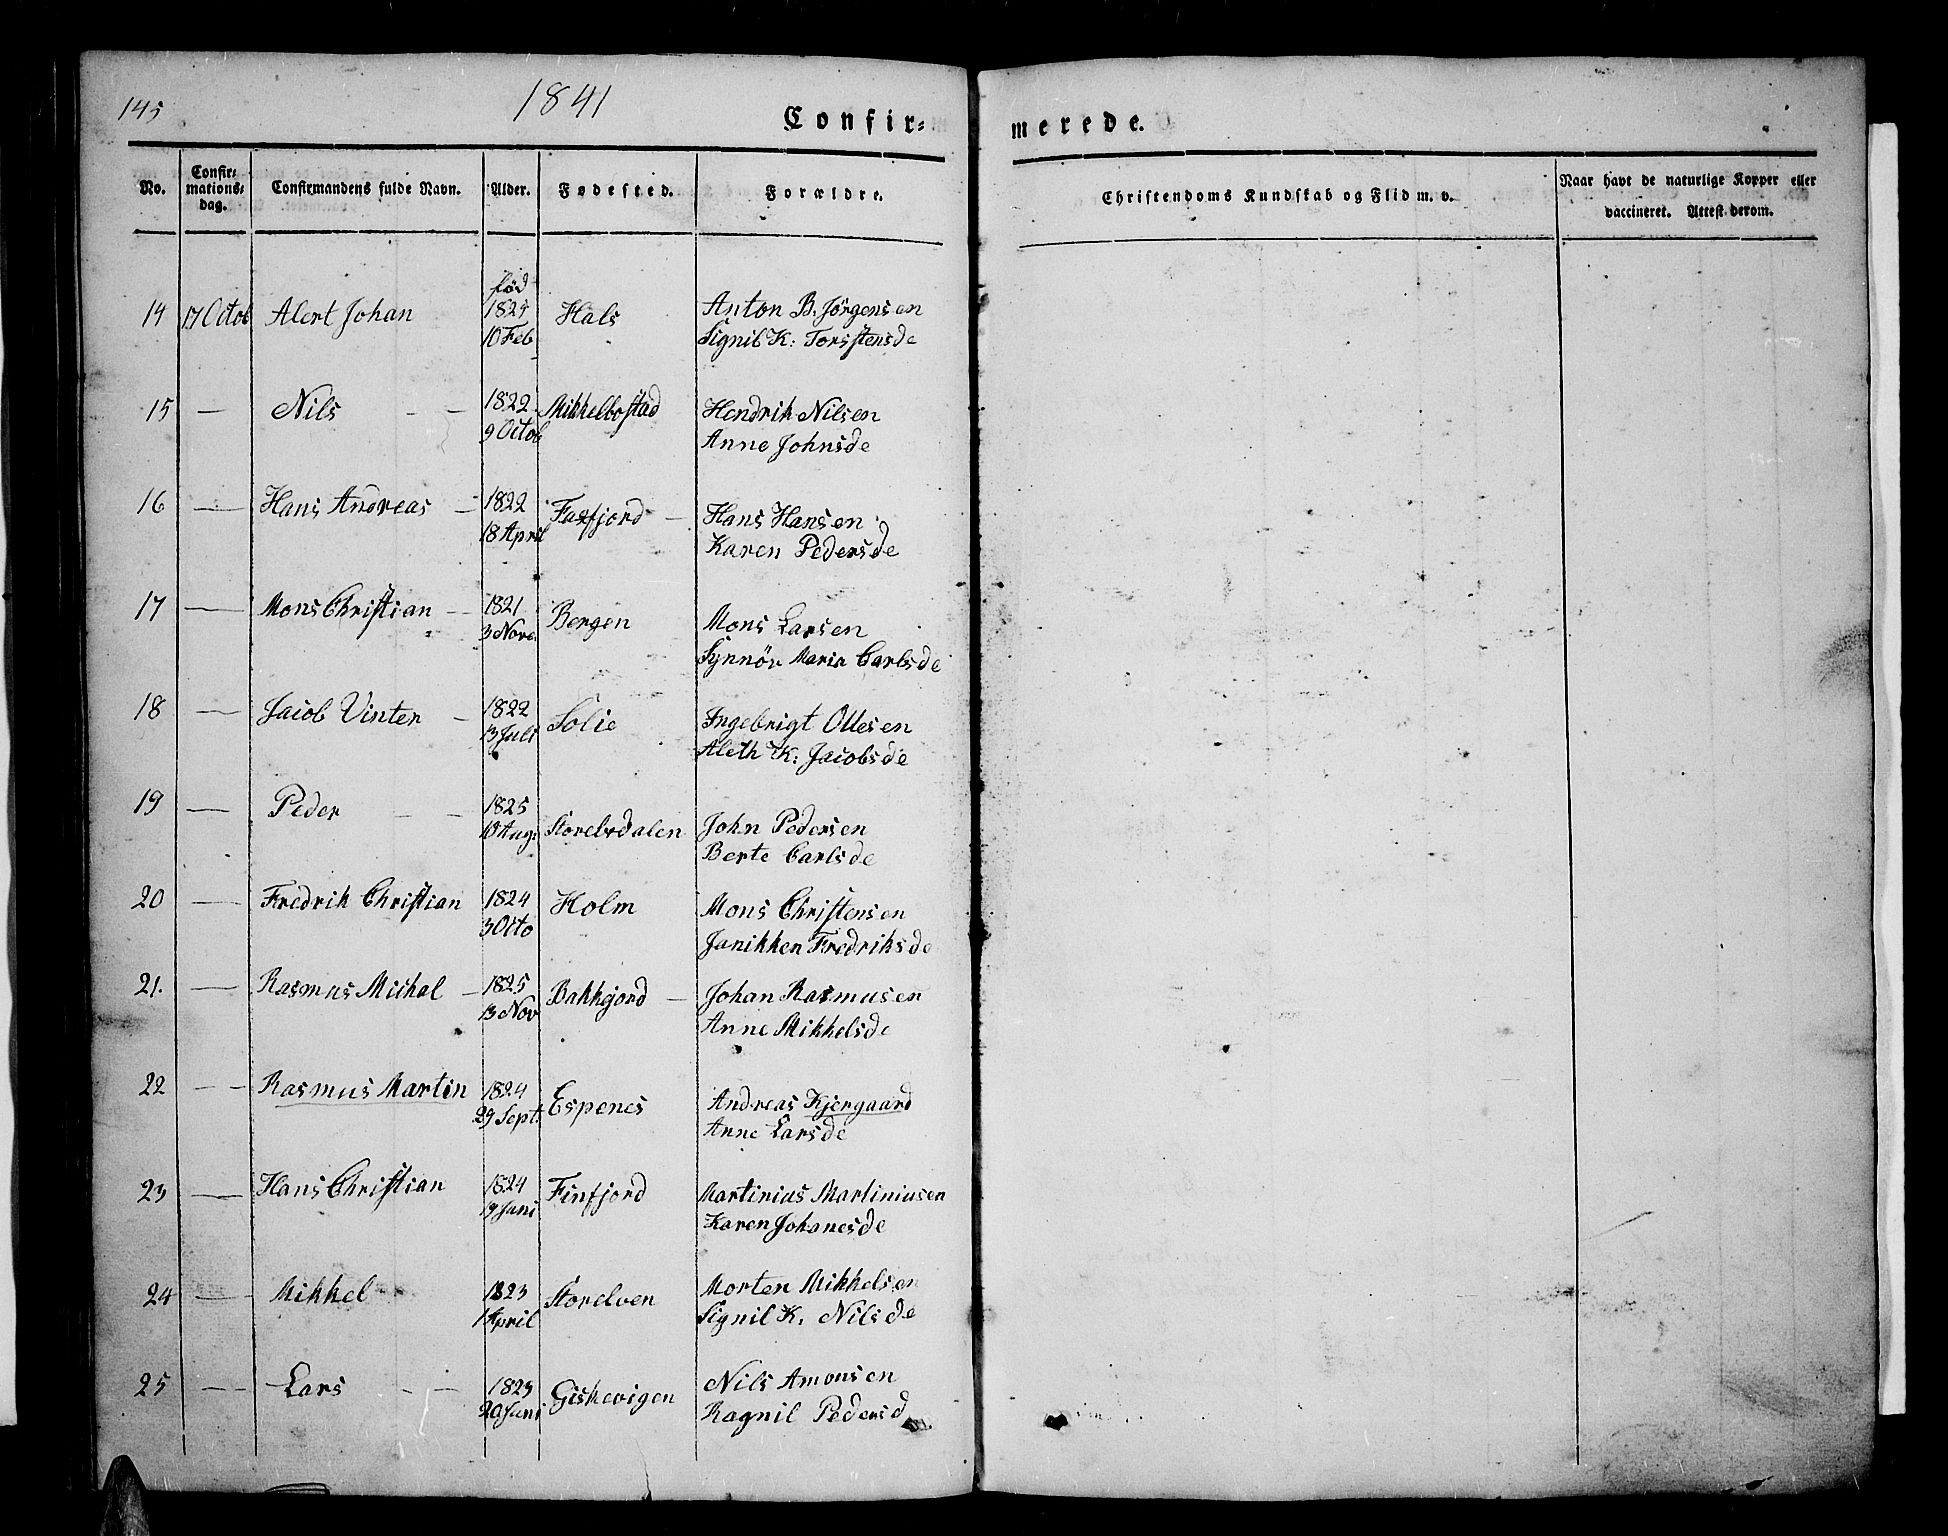 145
1841
Confir-
merede.
No. Confir-mations-dag. Confirmandens fulde Navn. Alder. Fødested. Forældre.
Christendoms Kundskab og Flid m. v. Naar havt de naturlige Kopper eller vaccineret. Attest derom.
fød
14 17 Octob Alert Johan 1825 Hals Anton B. Jörgensen
10 Feb Signil K: Torsstensde
15 — Nils — — 1822 Mikkelbostad Hendrik Nilsen
9 Octob Anne Johnsde
16 — Hans Andreas — 1822 Faxfjord — Hans Hansen
18 April Karen Pedersde
17 — Mons Christian — 1821 Bergen Mons Larsen
3 Nove. Synnöv Maria Carlsde
18 — Jacob Vinter — 1822 Solie Ingebrigt Ollesen
13 Juli Aleth K: Jacobsde
19 — Peder — — 1825 Storebsdalen John Pedersen
10 Aug: Berte Carlsde
20 — Fredrik Christian 1824 Holm Mons Christensen
3 Octo Janikken Fredriksde
21. — Rasmus Mickal — 1825 Bakkejord — Johan Rasmusen
13 Nov Anne Mikkelsde
22 — — Rasmus Martin 1824 Espenes Andreas Kjergaard
29 Sept. Anne Larsde
23 — Hans Christian 1824 Finfjord Martinius Martiniusen
19 Juni Karen Johanesde
24 — Mikkel 1823 Storelven Morten Mikkelsen
1 April Signil K. Nilsde
25 — — Lars — — 1823 Giskevigen Nils Amonsen
20 Juni Ragnil Pedersd